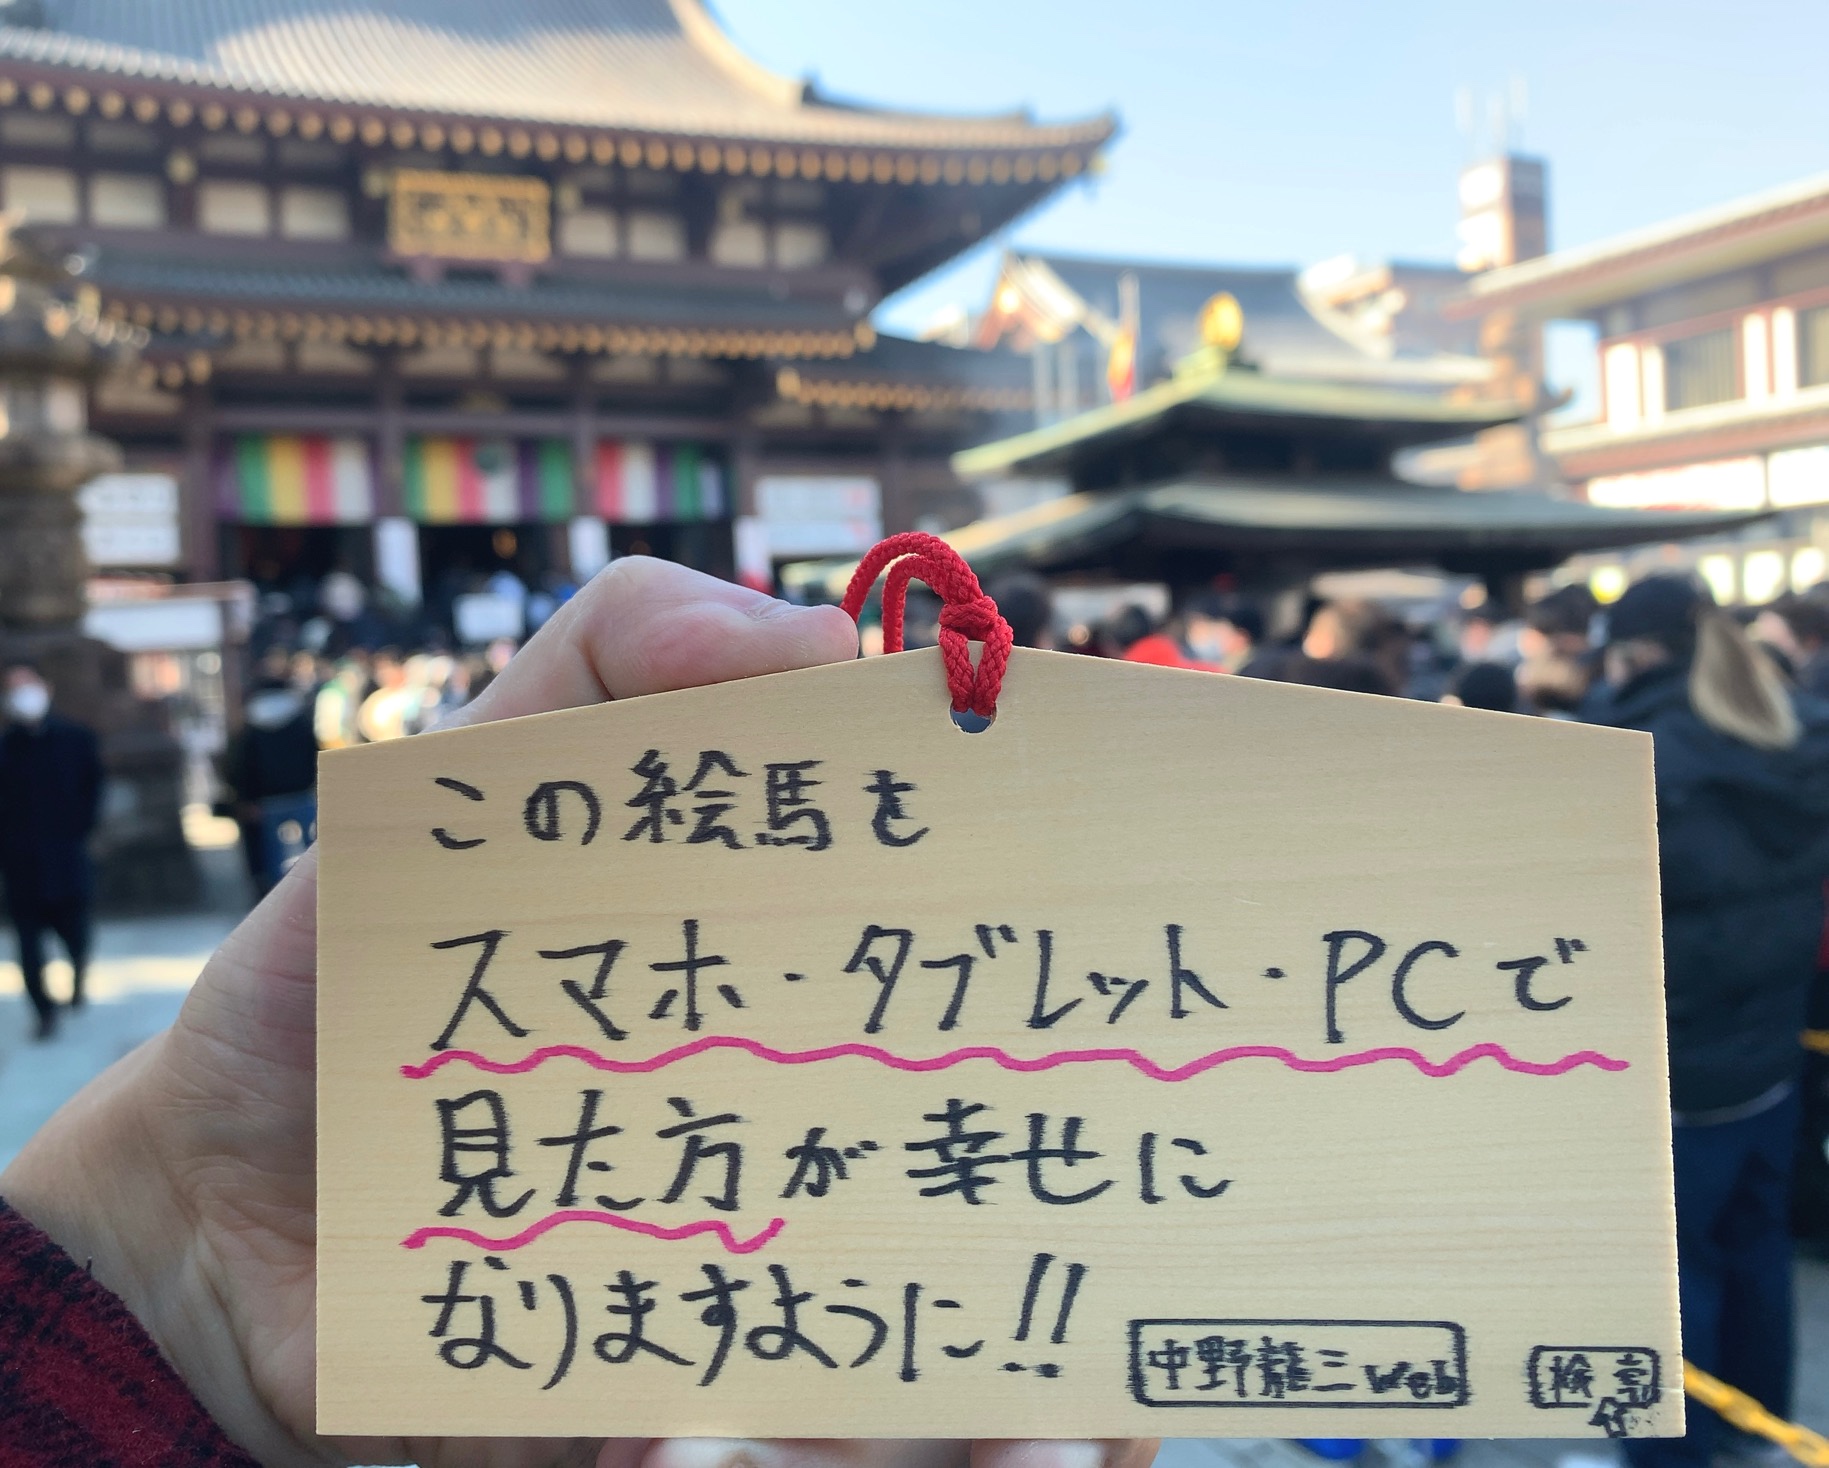 この絵馬を
スマホ・タブレット・PCで
見た方が幸せに
なりますように!!
中野龍三web
検索